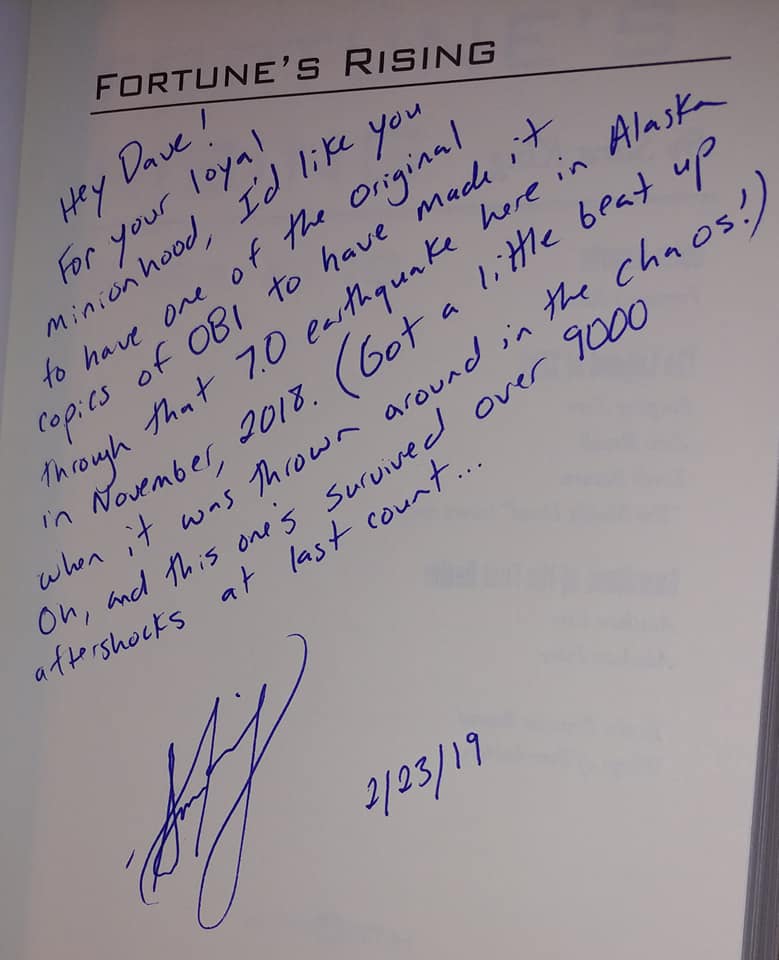 FORTUNE'S RISING
Hey Dave!
For your loyal
minionhood, I'd like you
to have one of the original
copies of OB1 to have made it
through that 7.0 earthquake here in Alaska
in November, 2018. (Got a little beat up
when it was thrown around in the chaos!)
Oh, and this one's survived over 9000
aftershocks at last count...
2/23/19